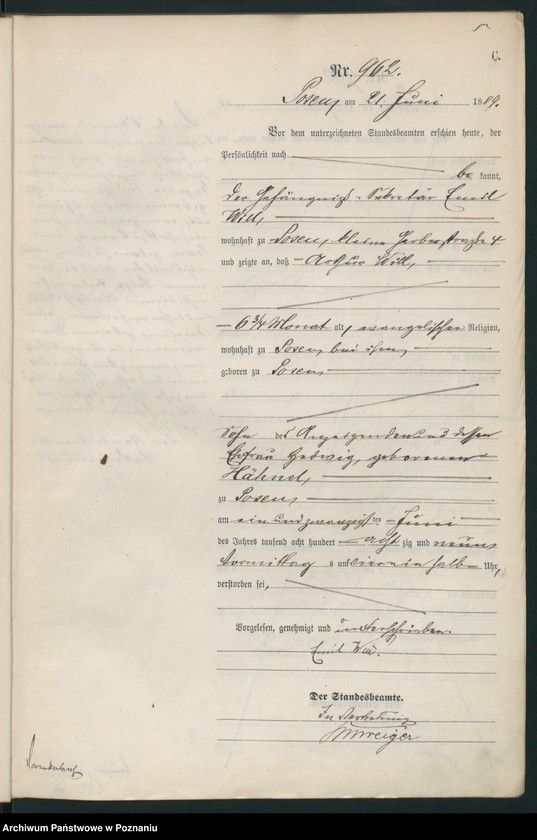 C.
Nr. 962.
Posen, am 21. Juni 1889.
Vor dem unterzeichneten Standesbeamten erschien heute, der
Persönlichkeit nach
be kannt,
der Gefängniß-Sekretär Emil
Will,
wohnhaft zu Posen, kleine Gerberstraße 4
und zeigte an, daß Arthur Will,
6 3/4 Monat alt, evangelischer Religion,
wohnhaft zu Posen, bei ihm,
geboren zu Posen
Sohn des Anzeigenden und dessen
Ehefrau Hedwig, geborenen
Hähnel,
zu Posen,
am ein und zwanzigsten Juni
des Jahres tausend acht hundert acht zig und neun
Vormittag s um vier ein halb Uhr,
verstorben sei,
Vorgelesen, genehmigt und unterschrieben.
Emil Will.
Der Standesbeamte.
In Vertretung
Archiwum Państwowe w Poznaniu